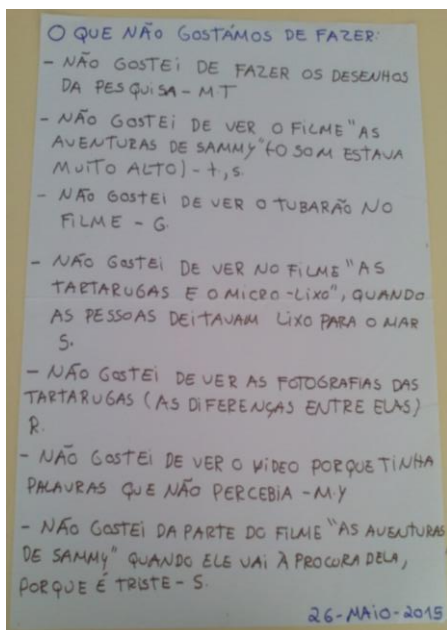 O QUE NÃO GOSTÁMOS DE FAZER:
- NÃO GOSTEI DE FAZER OS DESENHOS
DA PESQUISA - M.T
- NÃO GOSTEI DE VER O FILME "AS
AVENTURAS DE SAMMY" (O SOM ESTAVA
MUITO ALTO) - t, s.
- NÃO GOSTEI DE VER O TUBARÃO NO
FILME - G.
- NÃO GOSTEI DE VER NO FILME "AS
TARTARUGAS E O MICRO-LIXO", QUANDO
AS PESSOAS DEITAVAM LIXO PARA O MAR
S.
- NÃO GOSTEI DE VER AS FOTOGRAFIAS DAS
TARTARUGAS (AS DIFERENÇAS ENTRE ELAS)
R.
- NÃO GOSTEI DE VER O VIDEO PORQUE TINHA
PALAVRAS QUE NÃO PERCEBIA - M.Y
- NÃO GOSTEI DA PARTE DO FILME "AS AVENTURAS
DE SAMMY" QUANDO ELE VAI À PROCURA DELA,
PORQUE É TRISTE - S.
26-MAIO-2015